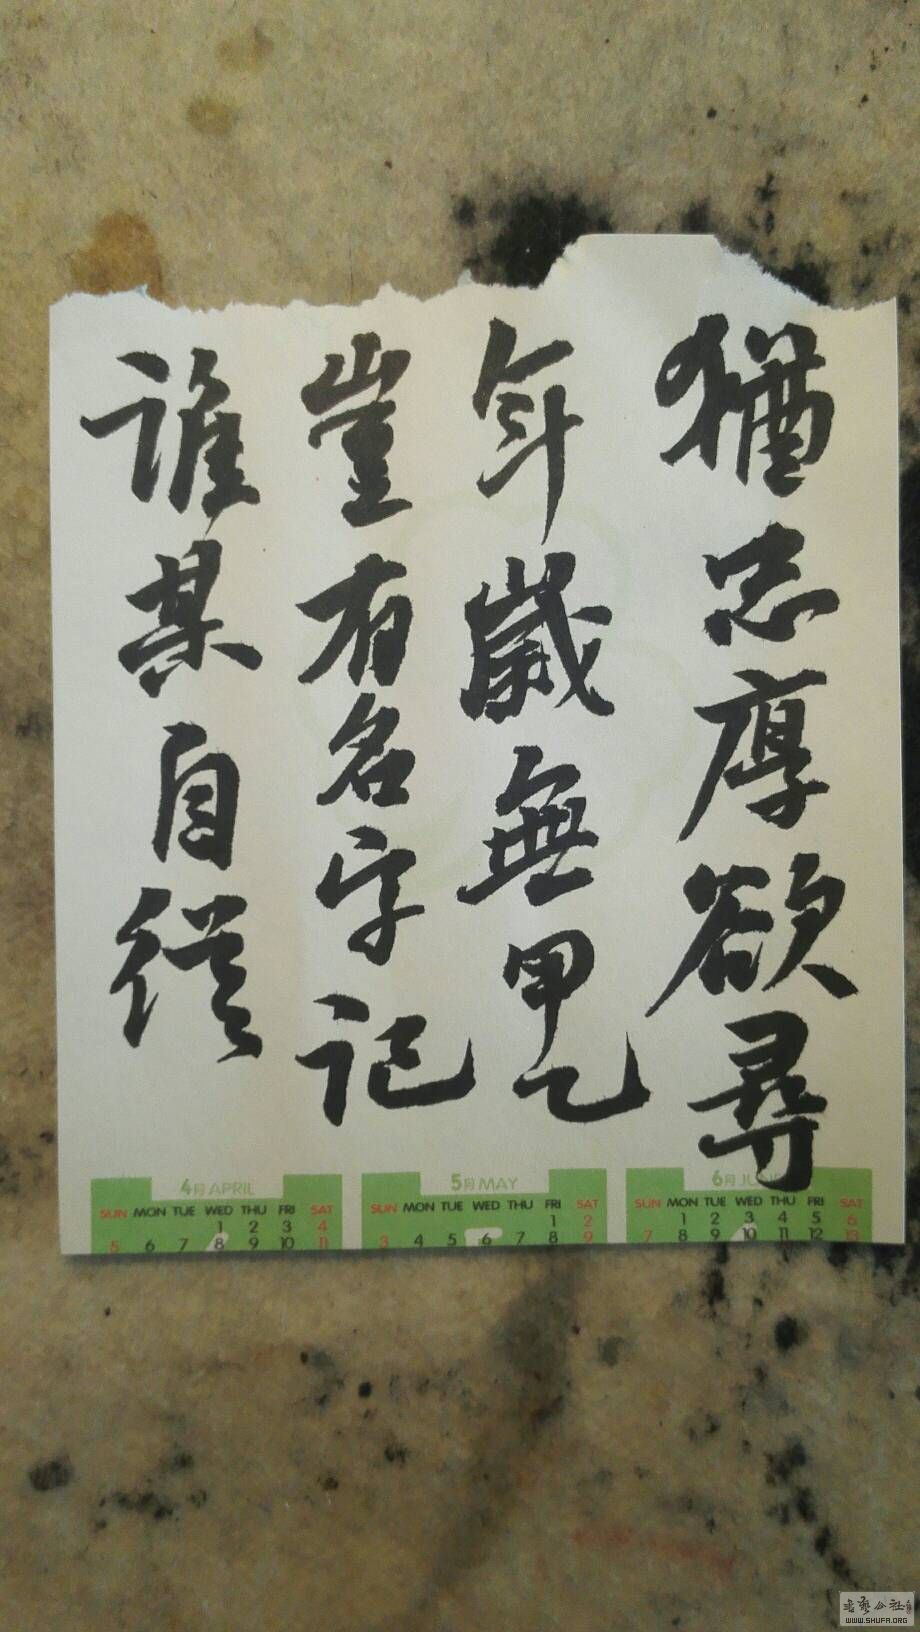 猶忠厚欲尋
年歲無甲乙
豈有名字記
誰某自從
4月 APRIL
SUN MON TUE WED THU FRI SAT
1 2 3 4
5 6 7 8 9 10 11
5月 MAY
SUN MON TUE WED THU FRI SAT
1 2
3 4 5 6 7 8 9
6月
SUN MON TUE WED THU FRI SAT
1 2 3 4 5 6
7 8 9 10 11 12 13
WWW.SHUFA.ORG